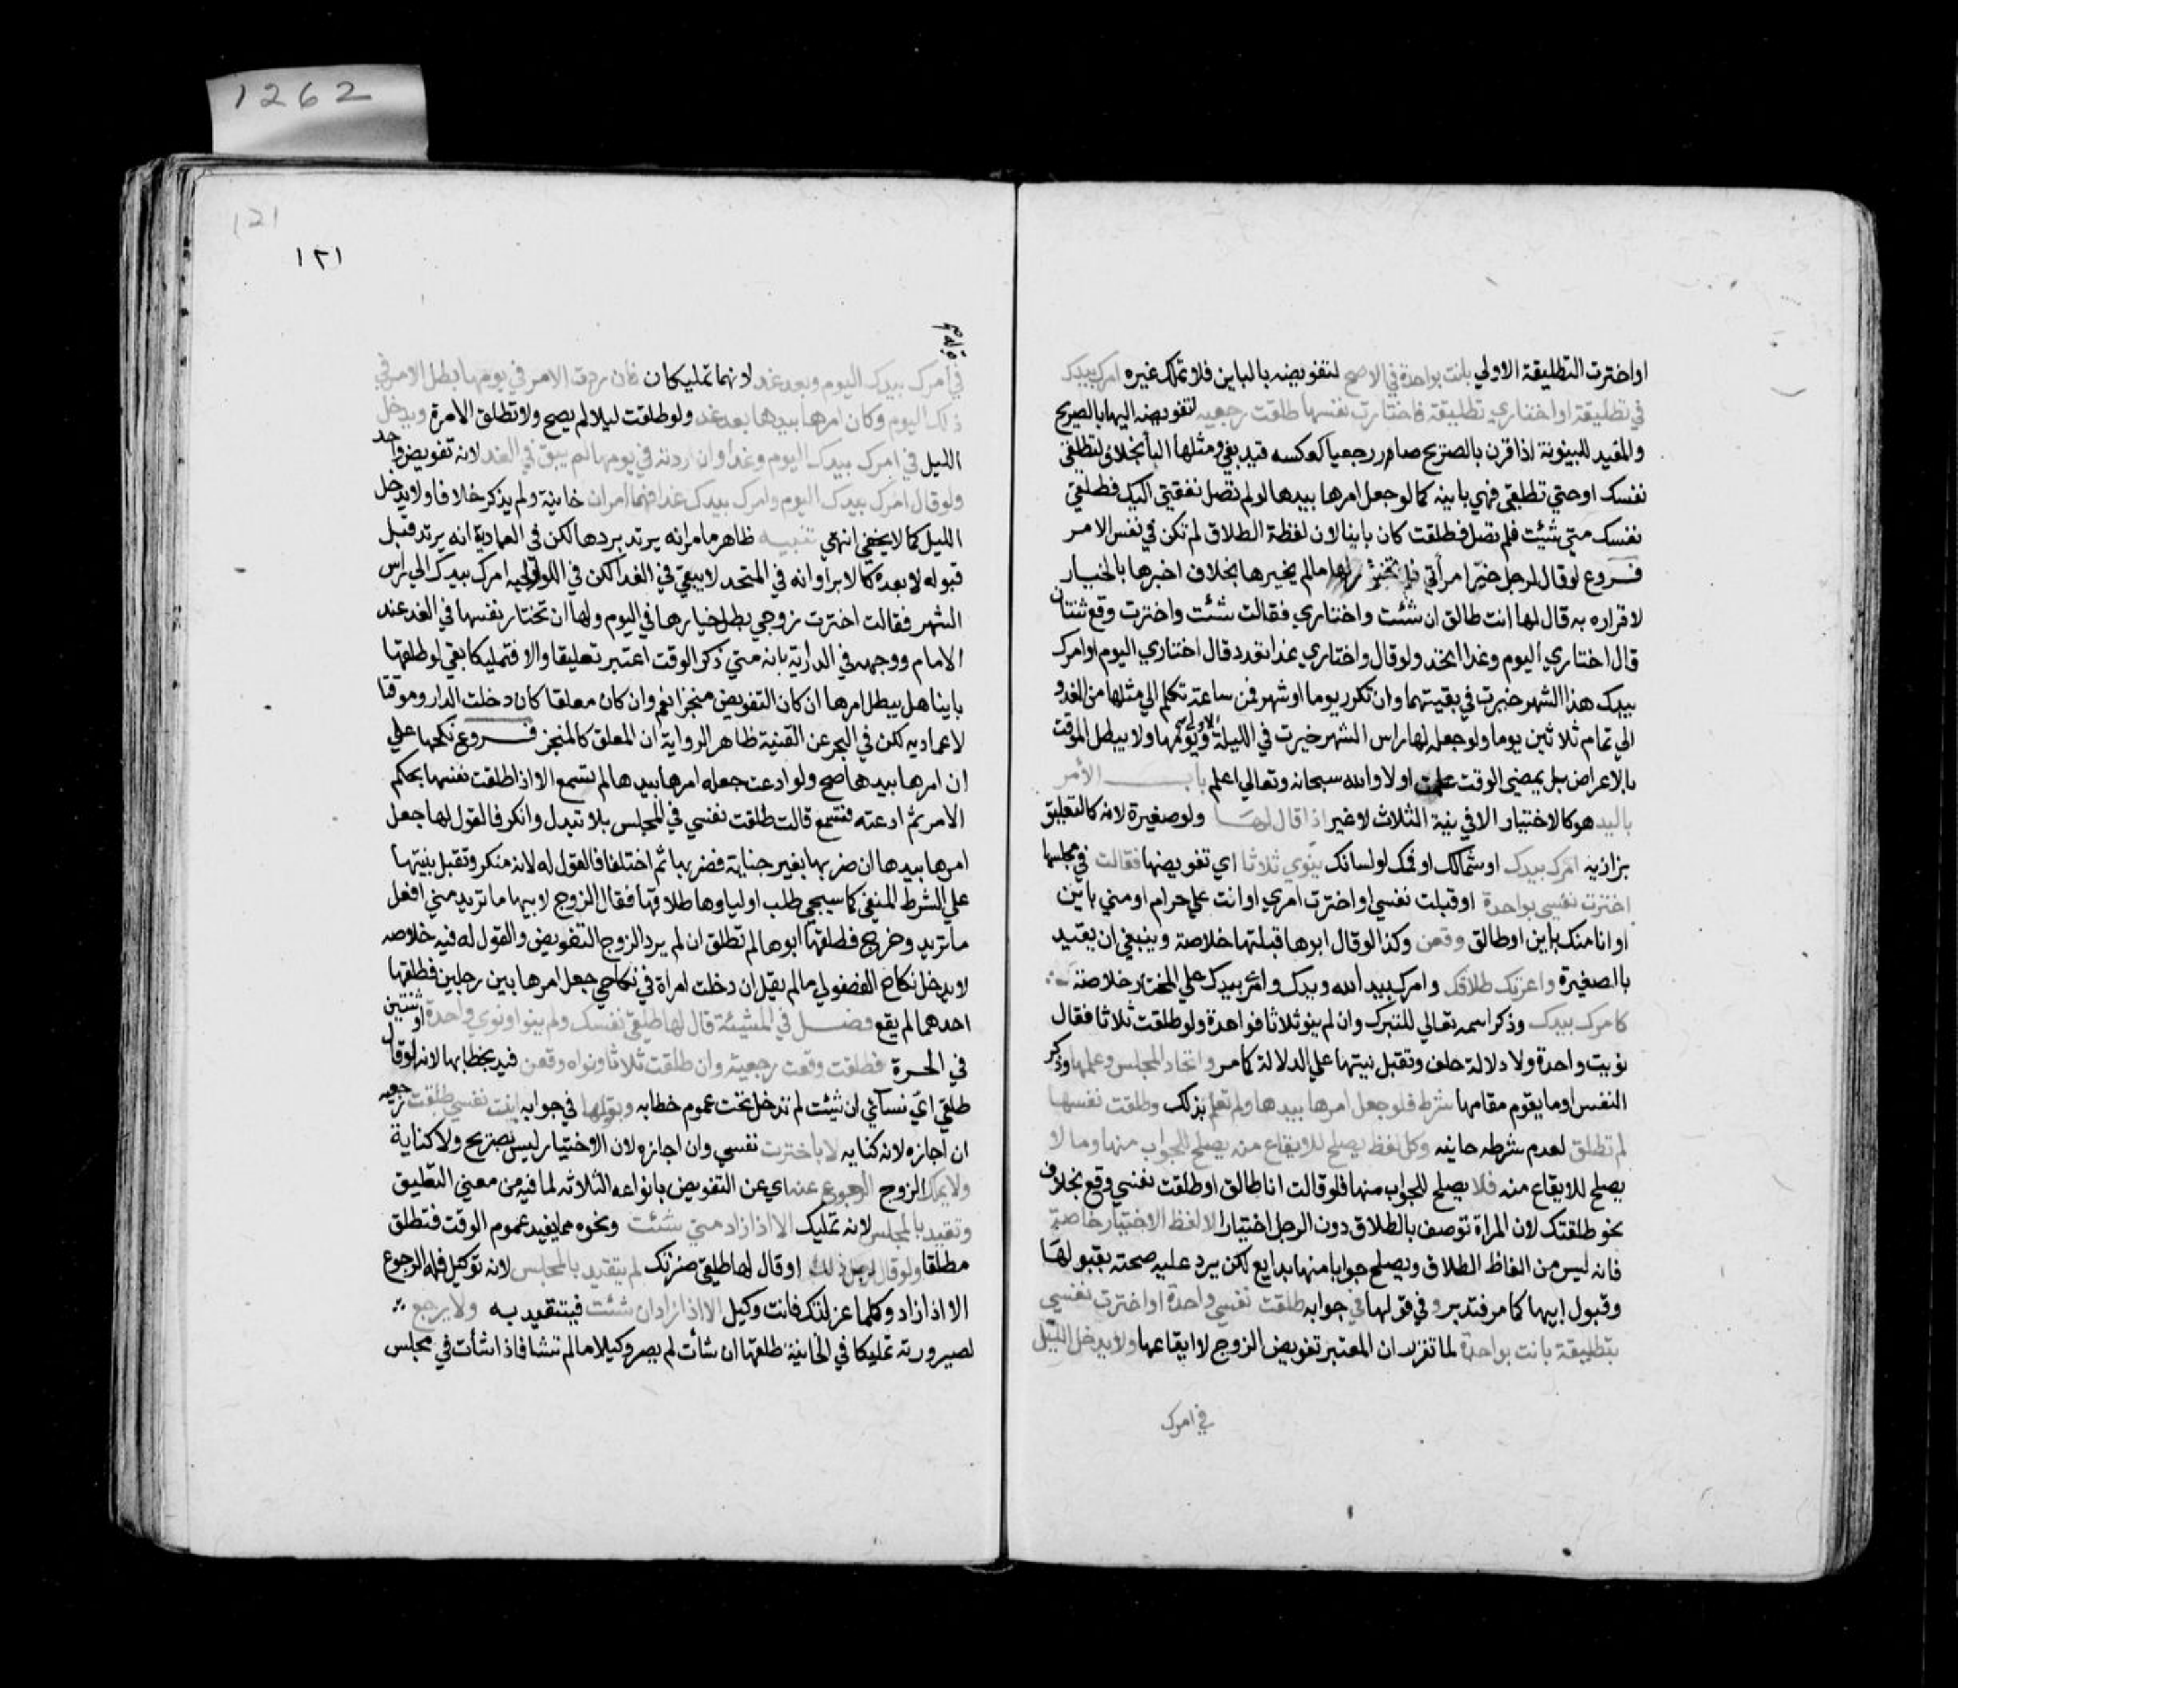 1262
اواخترت التطليقة الاولي بانت بواحدة في الاصح لتفويضه بالباين فلا تملك غيره امرك بيدك
في تطليقة او اختاري تطليقة فاختارت نفسها طلقت رجعيه لتفويضه اليها بالصريح
والمقيد للبينونة اذا قرن بالصريح صار رجعيا كعكسه قيد بفي ومثلها البا بخلاف لتطلقي
نفسك او حتي تطلقي فهي باينه كما لو جعل امرها بيدها لو لم تصل نفقتي اليك فطلقي
نفسك متي شئت فلم تصل فطلقت كان باينا لان لفظة الطلاق لم تكن في نفس الامر
فروع لو قال لرجل خير امرأتي مالم يخيرها بخلاف اخبرها بالخيار
لاقراره به قال لها انت طالق ان شئت واختاري فقالت شئت واخترت وقع ثنتان
قال اختاري اليوم وغدا اتحد ولو قال واختاري غدا تعدد قال اختاري اليوم او امرك
بيدك هذا الشهر خيرت في بقيتهما وان نكر يوما او شهر فمن ساعة تكلم الي مثلها من الغد و
الي تمام ثلاثين يوما ولو جعله لها راس الشهر خيرت في الليلة الاولي ويومها ولا يبطل الموقت
بالاعراض بل بمضي الوقت علمت اولا والله سبحانه وتعالي اعلم باب الأمر
باليد هو كالاختيار الا في نية الثلاث لا غير اذا قال لها ولو صغيرة لانه كالتعليق
بزازيه امرك بيدك او شمالك او فمك او لسانك ينوي ثلاثا اي تفويضها فقالت في مجلسها
اخترت نفسي بواحدة او قبلت نفسي او اخترت امري او انت علي حرام او مني باين
او انا منك باين او طالق وقعن وكذا لو قال ابوها قبلتها خلاصة وينبغي ان يقيد
بالصغيرة واعرتك طلاقك وامرك بيد الله ويدك وامري بيدك علي المختار خلاصة
كامرك بيدك وذكر اسمه تعالي للتبرك وان لم ينو ثلاثا فواحدة ولو طلقت ثلاثا فقال
نويت واحدة ولا دلالة حلف وتقبل بينتها علي الدلالة كامر واتحاد المجلس وعلمها وذكر
النفس او ما يقوم مقامها شرط فلو جعل امرها بيدها ولم تعلم بذلك وطلقت نفسها
لم تطلق لعدم شرطه خانيه وكل لفظ يصلح للايقاع منه يصلح للجواب منها وما لا
يصلح للايقاع منه فلا يصلح للجواب منها فلو قالت انا طالق او طلقت نفسي وقع بخلاف
نحو طلقتك لان المراة توصف بالطلاق دون الرجل اختيار الا لفظ الاختيار خاصة
فانه ليس من الفاظ الطلاق ويصلح جوابا منها بدايع لكن يرد عليه صحته بقبولها
وقبول ابيها كما مر فتدبر وفي قولها في جوابه طلقت نفسي واحدة او اخترت نفسي
بتطليقة بانت بواحدة لما تقرر ان المعتبر تفويض الزوج لا ايقاعها ولا يدخل الليل
في امرك
121
١٢١
في امرك بيدك اليوم وبعد غد لانهما تمليكان فان ردت الامر في يومها بطل الامر في
ذلك اليوم وكان امرها بيدها بعد غد ولو طلقت ليلا لم يصح ولا تطلق الا مرة ويدخل
الليل في امرك بيدك اليوم وغدا وان ردته في يومها لم يبق في الغد لانه تفويض واحد
ولو قال امرك بيدك اليوم وامرك بيدك غدا فهما امران خانية ولم يذكر خلافا ولا يدخل
الليل كما لا يخفي انتهي تنبيه ظاهر ما مر انه يرتد بردها لكن في العمادية انه يرتد قبل
قبوله لا بعده كالابرا وانه في المتحد لا يبقي في الغد لكن في الولوالجيه امرك بيدك الي راس
الشهر فقالت اخترت زوجي بطل خيارها في اليوم ولها ان تختار نفسها في الغد عند
الامام ووجهه في الدراية بانه متي ذكر الوقت اعتبر تعليقا والا فتمليكا بقي لو طلقها
باينا هل يبطل امرها ان كان التفويض منجزا نعم وان كان معلقا كان دخلت الدار وموقتا
لا عماديه لكن في البحر عن القنية ظاهر الرواية ان المعلق كالمنجز فروع نكحها علي
ان امرها بيدها صح ولو ادعت جعله امرها بيدها لم تسمع الا اذا طلقت نفسها بحكم
الامر ثم ادعته فتسمع قالت طلقت نفسي في المجلس بلا تبدل وانكر فالقول لها جعل
امرها بيدها ان ضربها بغير جناية فضربها ثم اختلفا فالقول له لانه منكر وتقبل بينتها
علي الشرط المنفي كما سيجي طلب اولياوها طلاقها فقال الزوج لابيها ما تريد مني افعل
ما تريد وخرج فطلقها ابوها لم تطلق ان لم يرد الزوج التفويض والقول له فيه خلاصه
لا يدخل نكاح الفضولي مالم يقل ان دخلت امراة في نكاحي جعل امرها بين رجلين فطلقها
احدهما لم يقع فصل في المشيئة قال لها طلقي نفسك ولم ينو او نوي واحدة او ثنتين
في الحرة فطلقت وقعت رجعية وان طلقت ثلاثا ونواه وقعن قيد بخطابها لانه لو قال
طلقي اي نسائي ان شئت لم تدخل تحت عموم خطابه وبقولها في جوابه ابنت نفسي طلقت رجعيه
ان اجازه لانه كنايه لا باخترت نفسي وان اجازه لان الاختيار ليس بصريح ولا كناية
ولا يملك الزوج الرجوع عنه اي عن التفويض بانواعه الثلاثه لما فيه من معني التعليق
وتقيد بالمجلس لانه تمليك الا اذا زاد متي شئت ونحوه مما يفيد عموم الوقت فتطلق
مطلقا ولو قال لرجل ذلك او قال لها طلقي ضرتك لم يتقيد بالمجلس لانه توكيل فله الرجوع
الا اذا زاد وكلما عزلتك فانت وكيل الا اذا زاد ان شئت فيتقيد به ولا يرجع
لصيرورته تمليكا في الخانية طلقها ان شأت لم يصر وكيلا مالم تشا فاذا شأت في مجلس